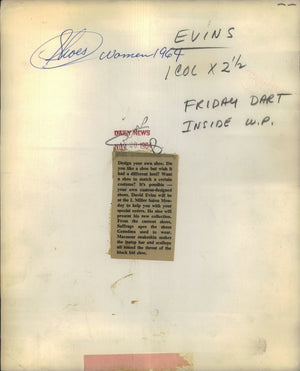 EVINS
Shoes women 1964
1 COL X 2 1/2
FRIDAY DART
INSIDE W.P.
DAILY NEWS
Design your own shoe. Do
you like a shoe but wish it
had a different heel? Want
a shoe to match a certain
costume? It's possible —
your own custom-designed
shoes. David Evins will be
at the I. Miller Salon Mon-
day to help you with your
special orders. He also will
present his new collection.
From the current shoes,
Suffrage apes the shoes
Grandma used to wear.
snakeskin makes
the pump bar and scallops
all round the throat of the
black kid shoe.